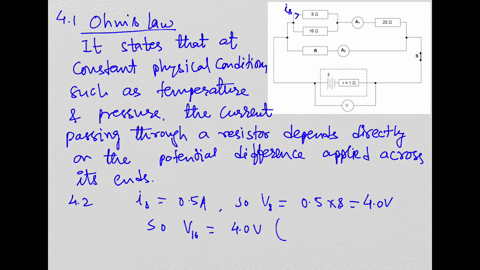 4.1 Ohm's Law
It states that at
constant physical condition,
such as temperature
& pressure, the current
passing through a resistor depends directly
on the potential difference applied across
its ends.
4.2 i₈ = 0.5A, so V₈ = 0.5×8 = 4.0V
so V₁₆ = 4.0V (
i₈
8 Ω
16 Ω
A₁
20 Ω
R
A₂
S
r = 1 Ω
V